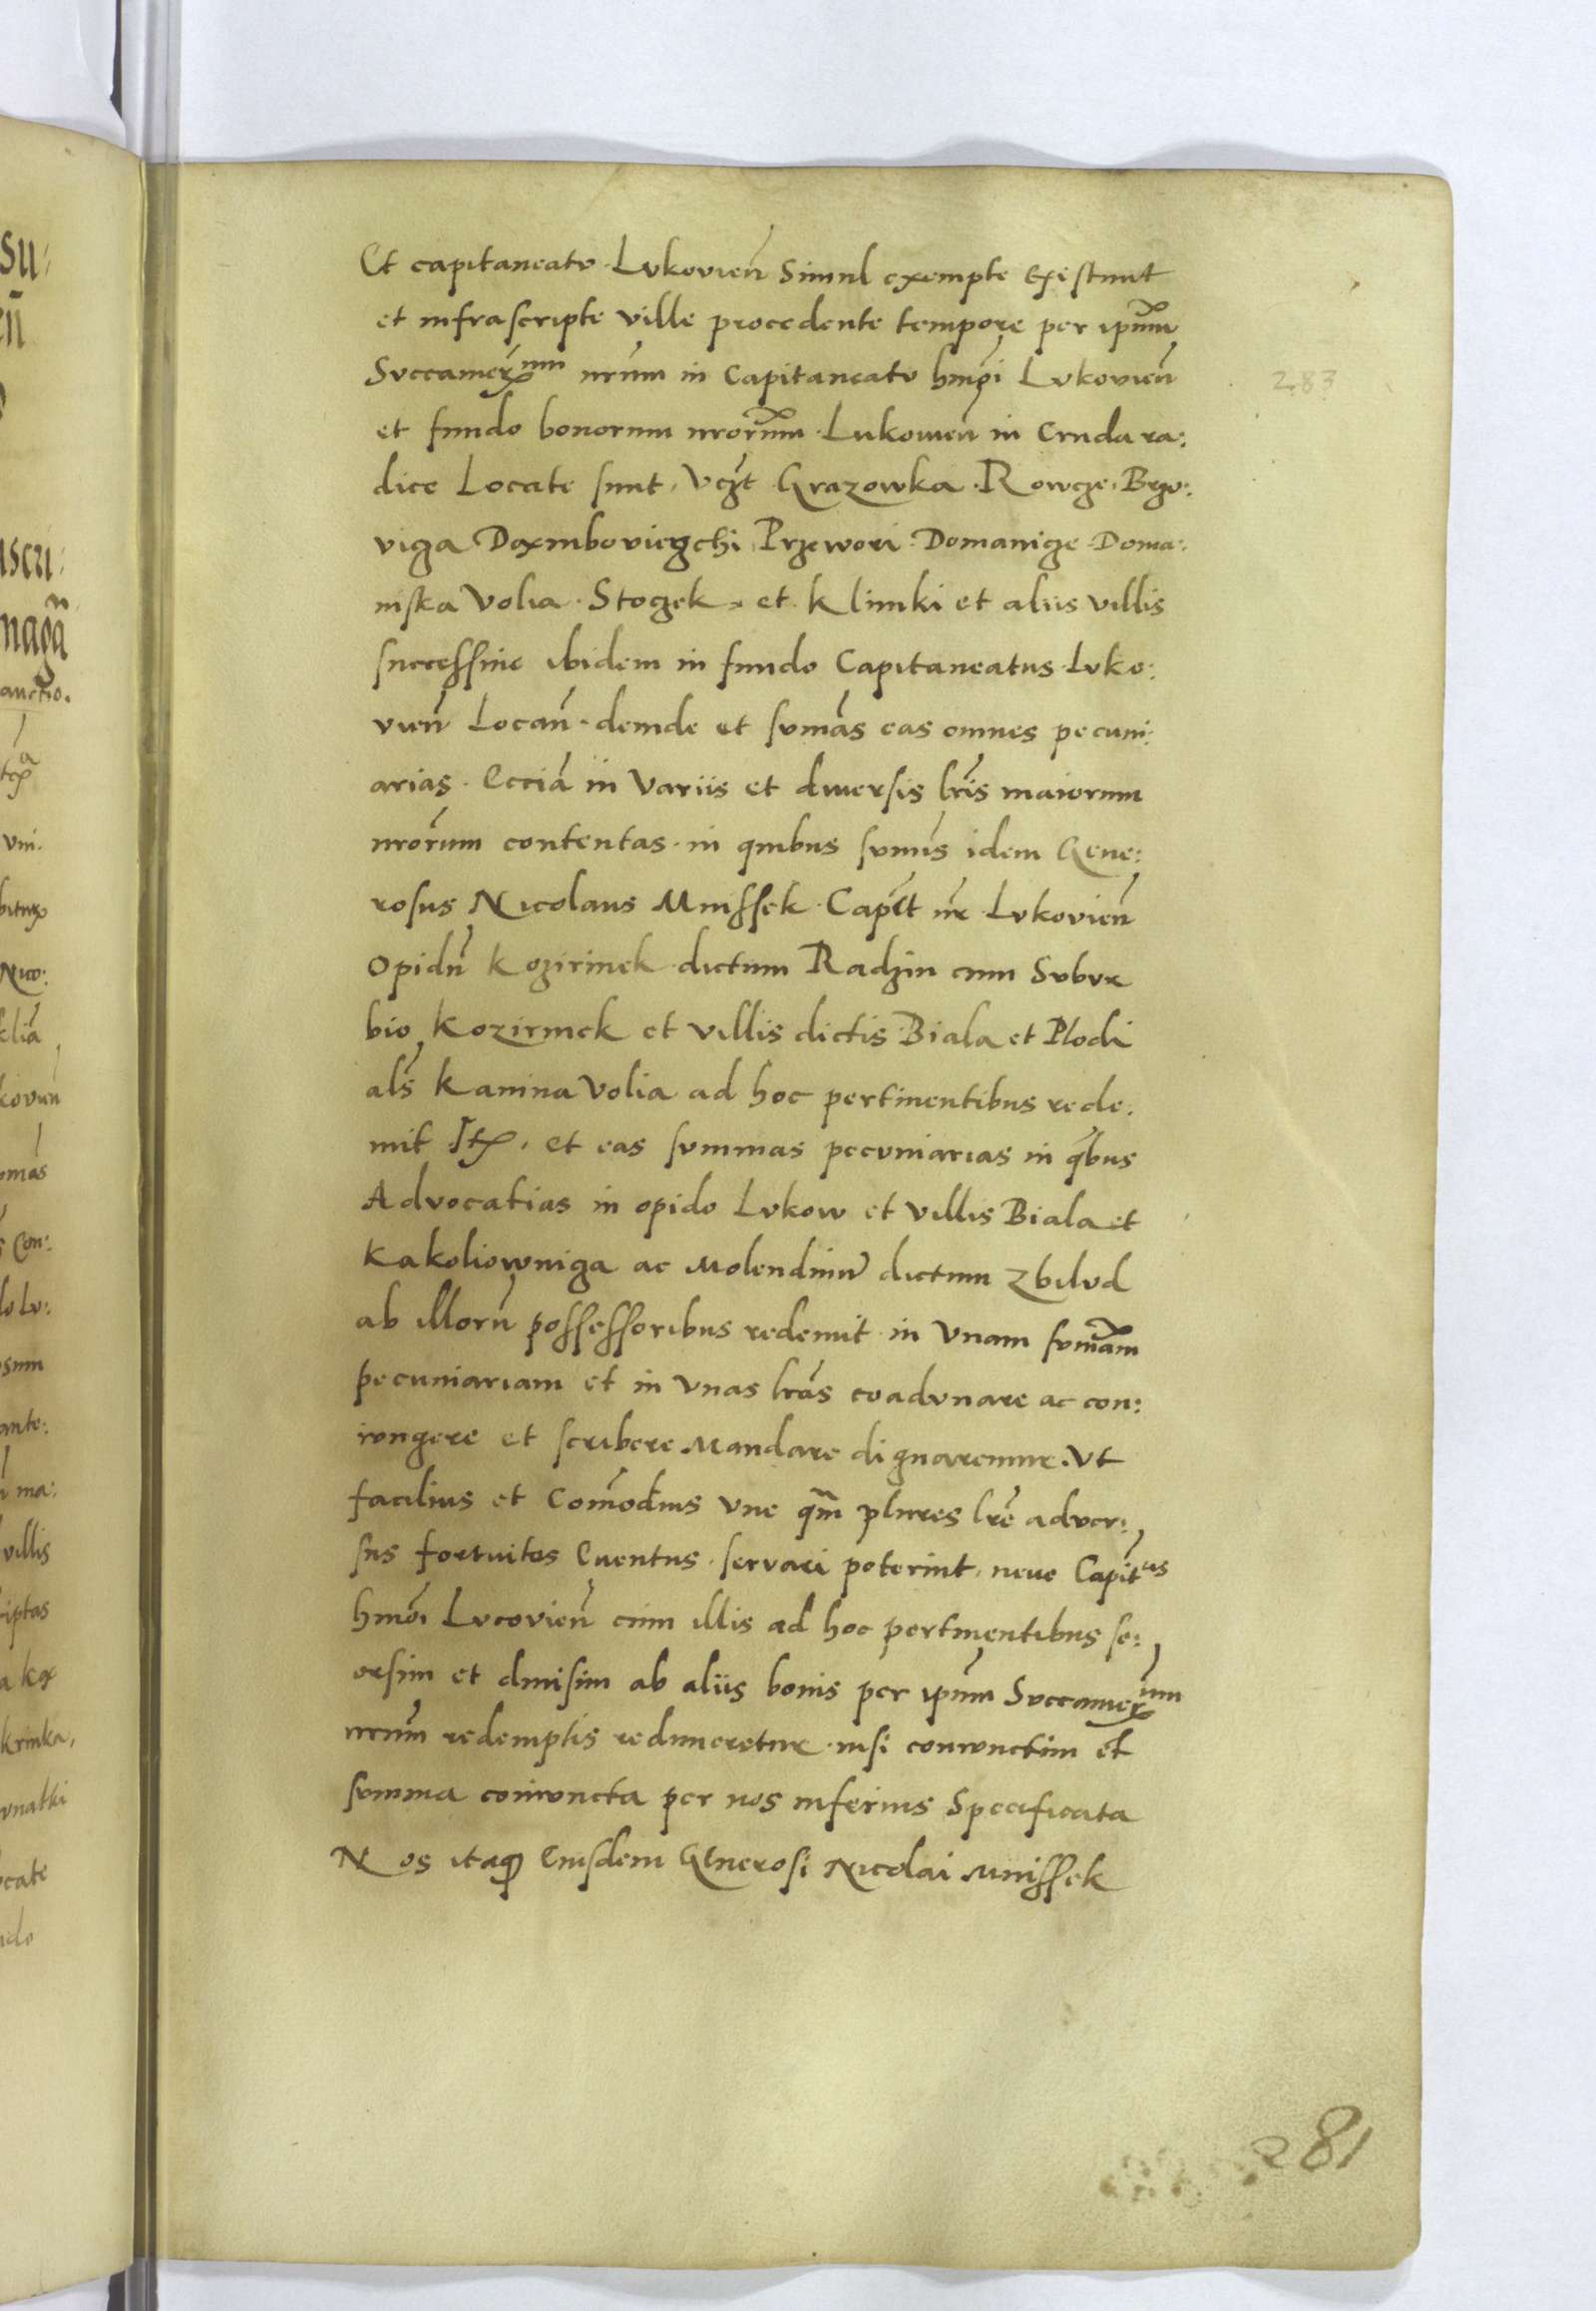 Et capitaneato Lukovień Simul exempte Existunt
et infrascripte ville procedente tempore per ipm̃m
Succamer̃um nrũm in Capitaneato hmõi Lukovień
et fundo bonorum nror̃um Lukowień in Cruda ra:
dice Locate sunt, Vcz̃t Grazowka. Rowcze. Brzo:
viga Doxmboviegchi Przewori. Domanicze. Doma:
niska Volia. Stoczek et Klimki et aliis villis
successive ibidem in fundo Capitaneatus Luko:
vień Locań. deinde et sum̃as eas omnes pecuni:
arias. Ecciã in Variis et diversis lrĩs maiorum
nror̃um contentas. in quibus sum̃is idem Gene:
rosus Nicolaus Mnissek Capẽt nr̃ Lukovień
Opidũ Kozirinek dictum Radzin cum Subur
bio Kozirinek et villis dictis Biala et Plodi
als̃ Kanina Volia ad hoc pertinentibus rede:
mit Itẽ, et eas summas pecuniarias in qĩbus
Advocatias in opido Lukow et villis Biala et
Kakoliowniga ac Molendinũ dictum Zbilud
ab illorũ possessoribus redemit in Vnam sum̃am
pecuniariam et in Vnas lrãs coadunare ac con:
iungere et scribere Mandare dignaremur. Vt
facilius et Com̃odius Vne qm̃ plures lrẽ adver:
sus fortuitos Eventus servari poterint, neve Capit̃us
hmõi Lucovień cum illis ad hoc pertinentibus se:
orsim et divisim ab aliis bonis per ipũm Succamer̃um
nrũm redemptis redimeretur nisi coniunctim et
summa coniuncta per nos inferius Specificata
Nos itaq Eiusdem Generosi Nicolai Mnissek
283
281